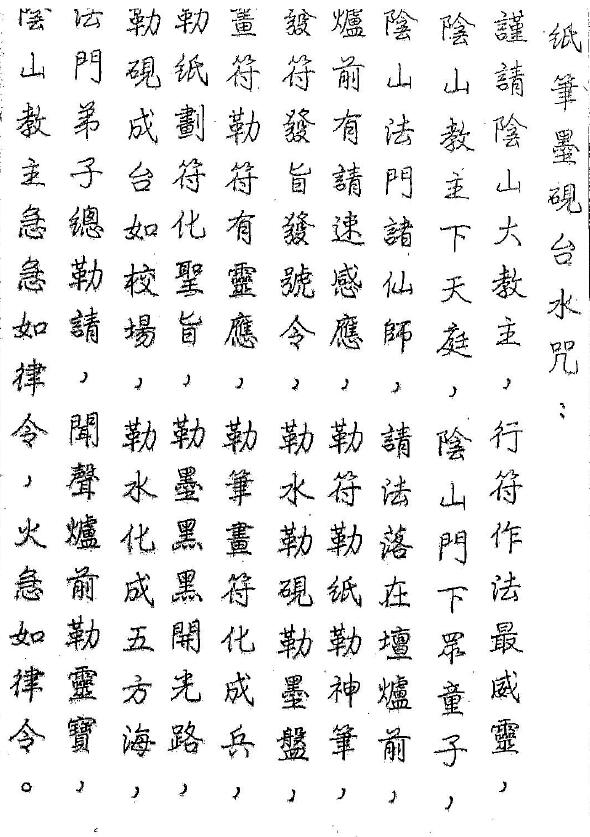 纸筆墨硯台水咒：
謹請陰山大教主，行符作法最威靈，
陰山教主下天庭，陰山門下眾童子，
陰山法門諸仙師，請法落在壇爐前，
爐前有請速感應，勒符勒紙勒神筆，
發符發旨發號令，勒水勒硯勒墨盤，
畫符勒符有靈應，勒筆畫符化成兵，
勒紙劃符化聖旨，勒墨黑黑開光路，
勒硯成台如校場，勒水化成五方海，
法門弟子總勒請，聞聲爐前勒靈寶，
陰山教主急急如律令，火急如律令。